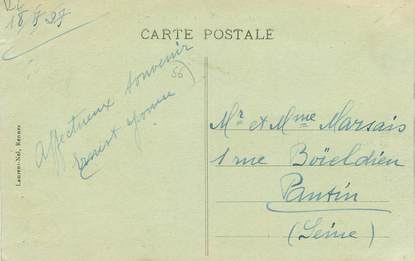 18 8 27
CARTE POSTALE
Affectueux souvenir
56
Mr et Mme Marsais
1 rue Boïeldieu
Pantin
(Seine)
Laurent-Nel, Rennes